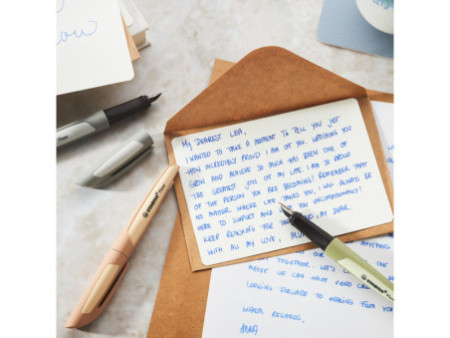 ow
MY DEAREST LEA,
I WANTED TO TAKE A MOMENT TO TELL YOU JUST
HOW INCREDIBLY PROUD I AM OF YOU. WATCHING YOU
GROW AND ACHIEVE SO MUCH HAS BEEN ONE OF
THE GREATEST JOYS OF MY LIFE. I AM SO PROUD
OF THE PERSON YOU ARE BECOMING! REMEMBER THAT
NO MATTER WHERE LIFE TAKES YOU, I WILL ALWAYS BE
HERE TO SUPPORT AND YOU UNCONDITIONALLY!
KEEP REACHING FOR MY DEAR.
WITH ALL MY LOVE,
ANYTHING
TOGETHER. LET'S THE
MAKE WE CAN NEED
LOOKING FORWARD TO HEARING FROM YOU
WARM REGARDS,
STABILO
STABILO